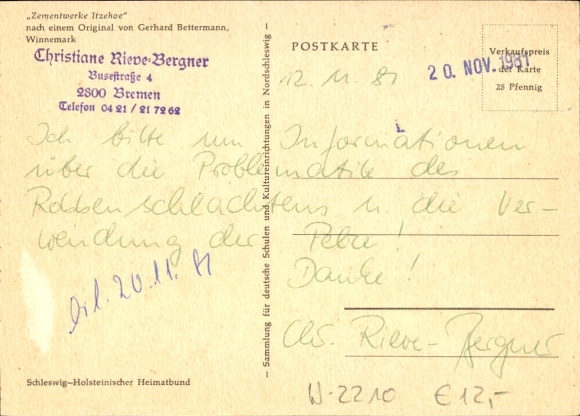 „Zementwerke Itzehoe“
nach einem Original von Gerhard Bettermann,
Winnemark
Christiane Rieve-Bergner
Busestraße 4
2800 Bremen
Telefon 04 21 / 21 72 62
POSTKARTE
Verkaufspreis
der Karte
25 Pfennig
20. NOV. 1981
12. 11. 81
Ich bitte um Informationen
über die Problematik des
Robbenschlachtens u. die Ver-
wendung der Pelze!
Danke!
Chr. Rieve-Bergner
erl. 20.11. 81
— Sammlung für deutsche Schulen und Kultureinrichtungen in Nordschleswig —
Schleswig-Holsteinischer Heimatbund
W-2210 € 12,-